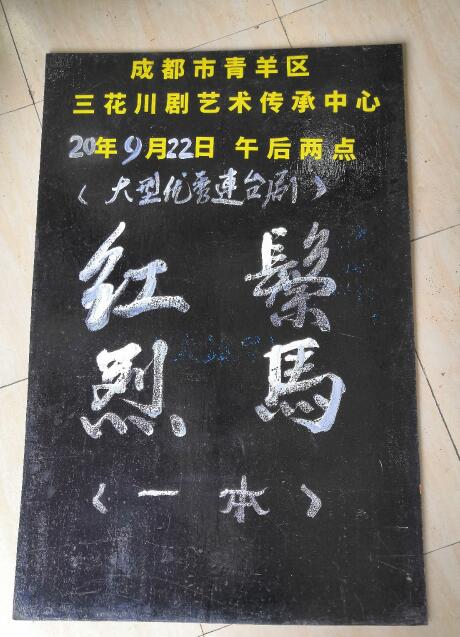 成都市青羊区
三花川剧艺术传承中心
20年9月22日 午后两点
〈大型优秀連台剧〉
红鬃
烈馬
〈一本〉